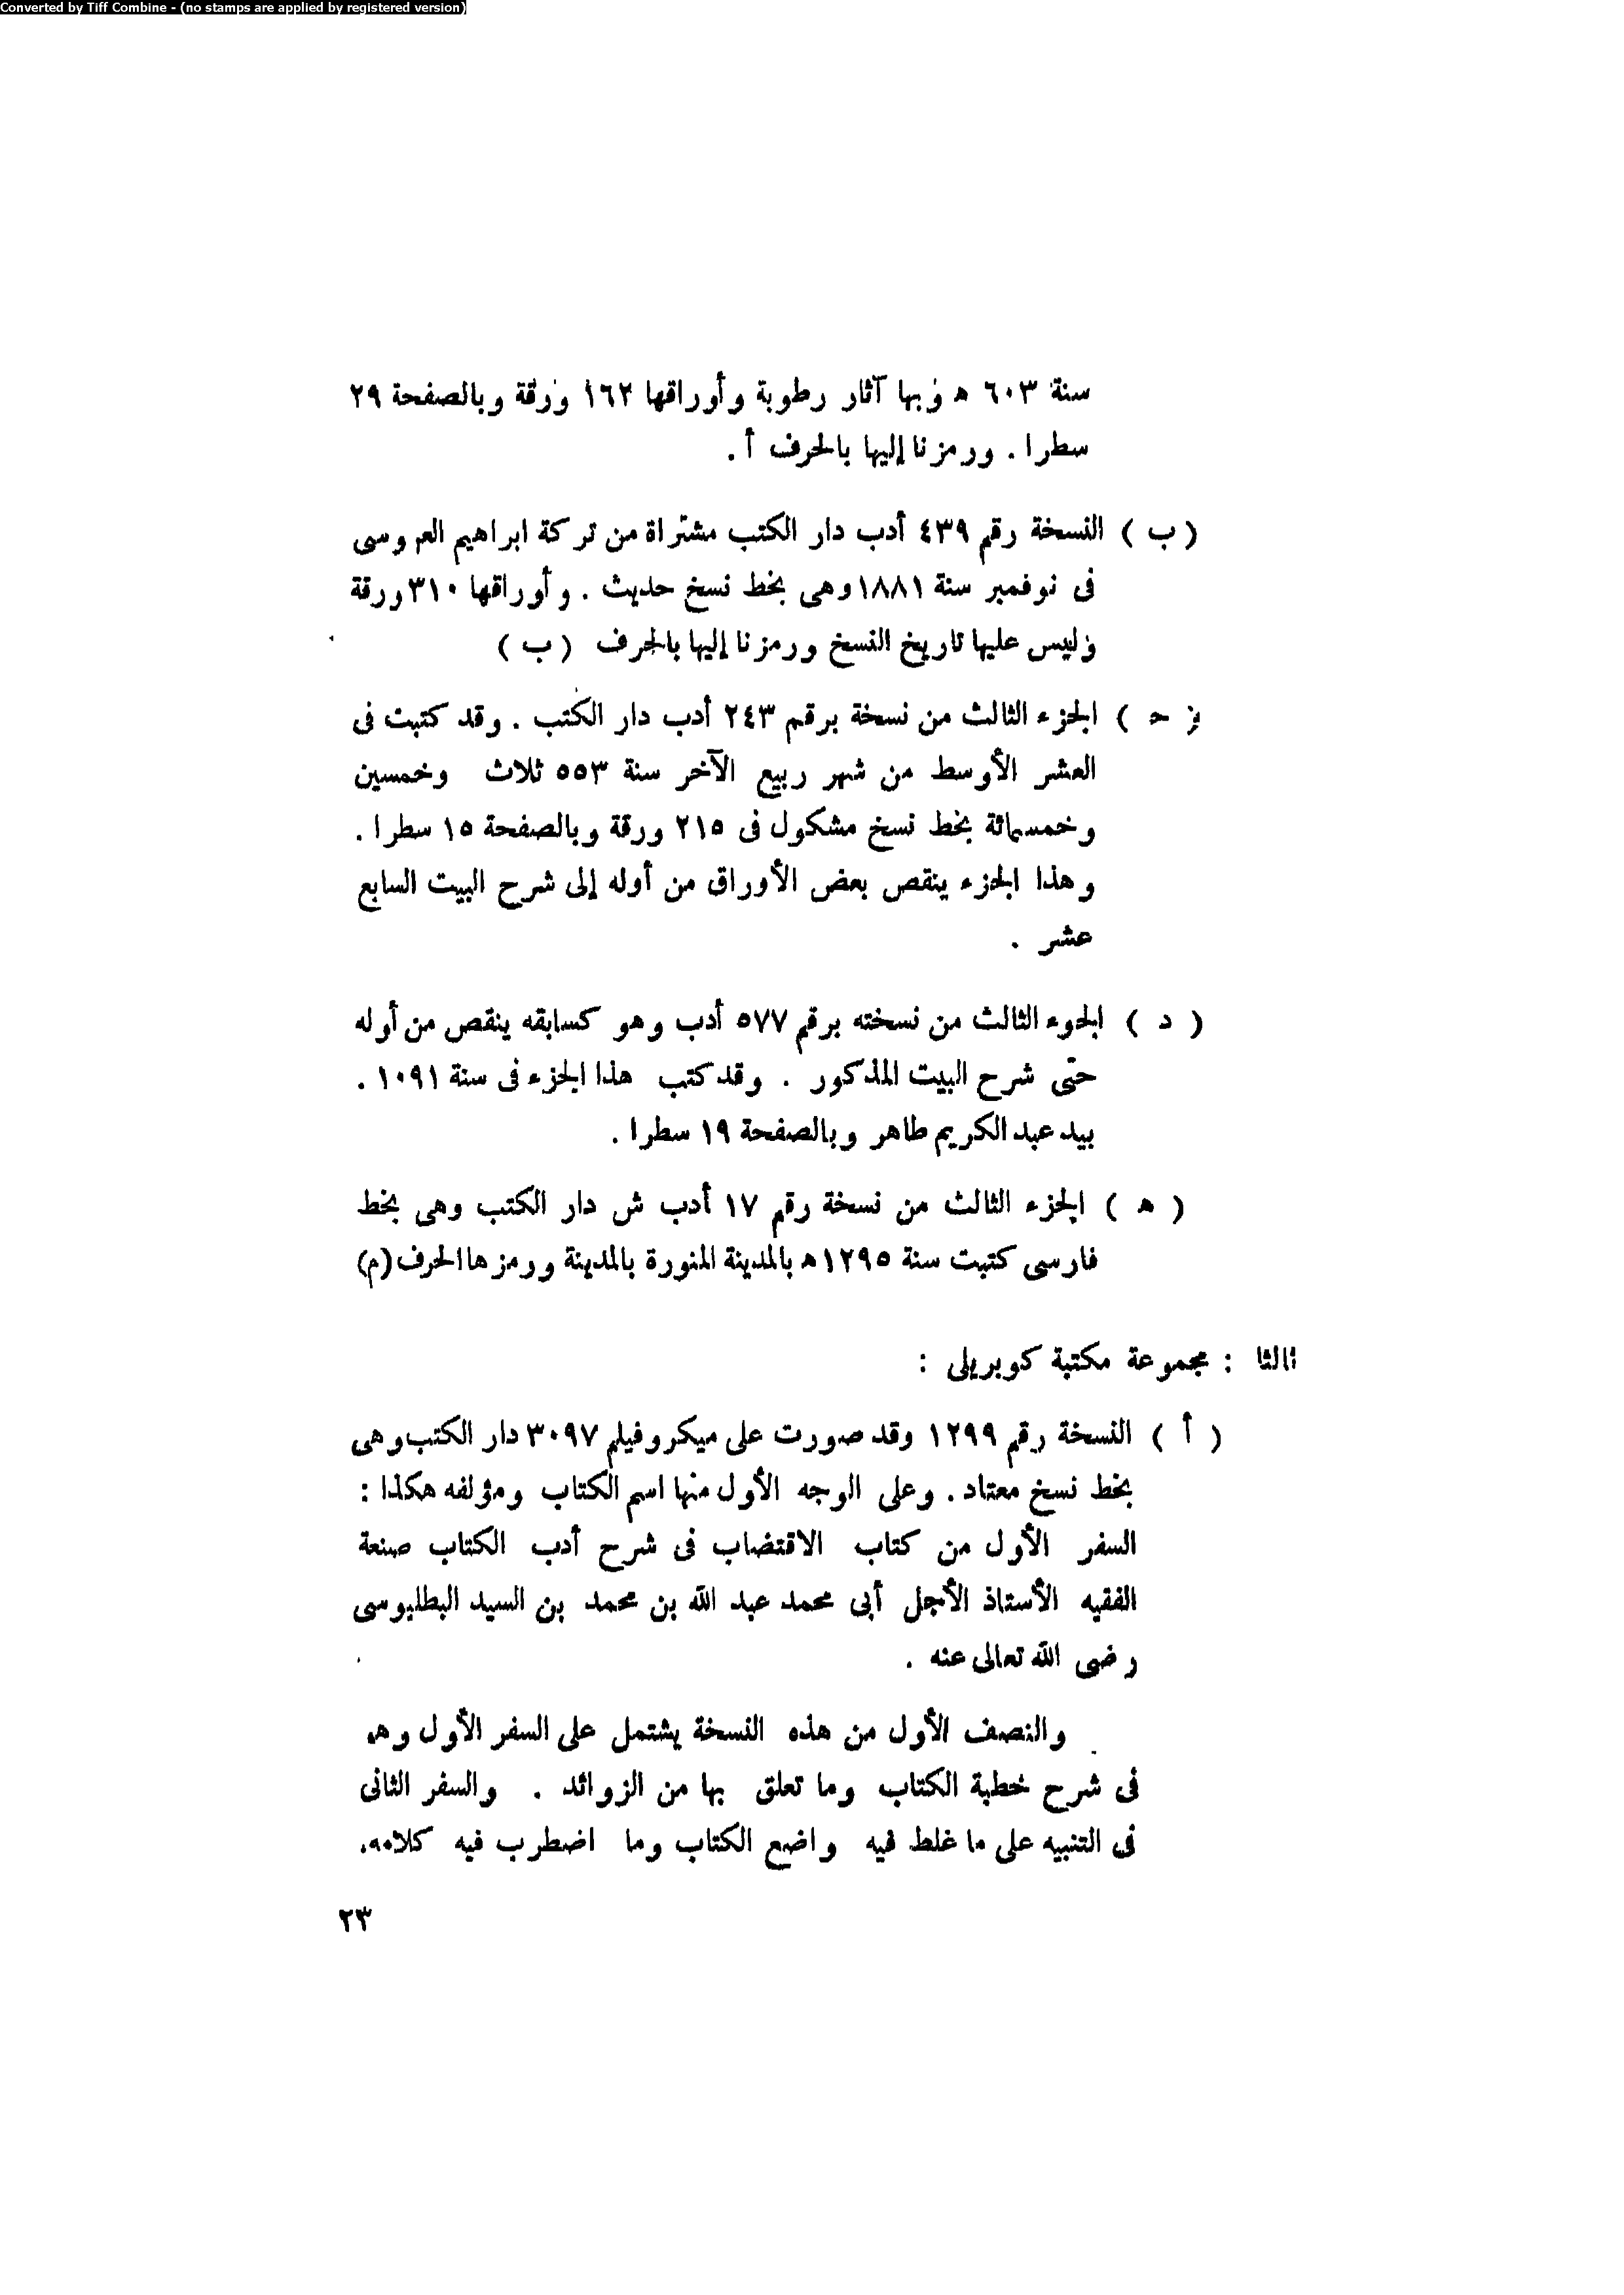 Converted by Tiff Combine - (no stamps are applied by registered version)
سنة ٦٠٣ ه وبها آثار رطوبة وأوراقها ١٦٢ ورقة وبالصفحة ٢٩
سطرا . ورمزنا إليها بالحرف أ .
( ب ) النسخة رقم ٤٣٩ أدب دار الكتب مشتراة من تركة ابراهيم العروسى
فى نوفمبر سنة ١٨٨١ وهى بخط نسخ حديث . وأوراقها ٣١٠ ورقة
وليس عليها تاريخ النسخ ورمزنا إليها بالحرف ( ب )
( ح ) الجزء الثالث من نسخة برقم ٢٤٣ أدب دار الكتب . وقد كتبت فى
العشر الأوسط من شهر ربيع الآخر سنة ٥٥٣ ثلاث وخمسين
وخمسمائة بخط نسخ مشكول فى ٢١٥ ورقة وبالصفحة ١٥ سطرا .
وهذا الجزء ينقص بعض الأوراق من أوله إلى شرح البيت السابع
عشر .
( د ) الجوء الثالث من نسخته برقم ٥٧٧ أدب وهو كسابقه ينقص من أوله
حتى شرح البيت المذكور . وقد كتب هذا الجزء فى سنة ١٠٩١ .
بيد عبد الكريم طاهر وبالصفحة ١٩ سطرا .
( ه ) الجزء الثالث من نسخة رقم ١٧ أدب ش دار الكتب وهى بخط
فارسى كتبت سنة ١٢٩٥ ه بالمدينة المنورة بالمدينة ورمزها الحرف (م)
ثالثا : مجموعة مكتبة كوبريلى :
( أ ) النسخة رقم ١٢٩٩ وقد صورت على ميكروفيلم ٣٠٩٧ دار الكتب وهى
بخط نسخ معتاد . وعلى الوجه الأول منها اسم الكتاب ومؤلفه هكذا :
السفر الأول من كتاب الاقتضاب فى شرح أدب الكتاب صنعة
الفقيه الأستاذ الأجل أبى محمد عبد الله بن محمد بن السيد البطليوسى
رضى الله تعالى عنه .
والنصف الأول من هذه النسخة يشتمل على السفر الأول وهو
فى شرح خطبة الكتاب وما تعلق بها من الزوائد . والسفر الثانى
فى التنبيه على ما غلط فيه واضع الكتاب وما اضطرب فيه كلامه.
٢٣